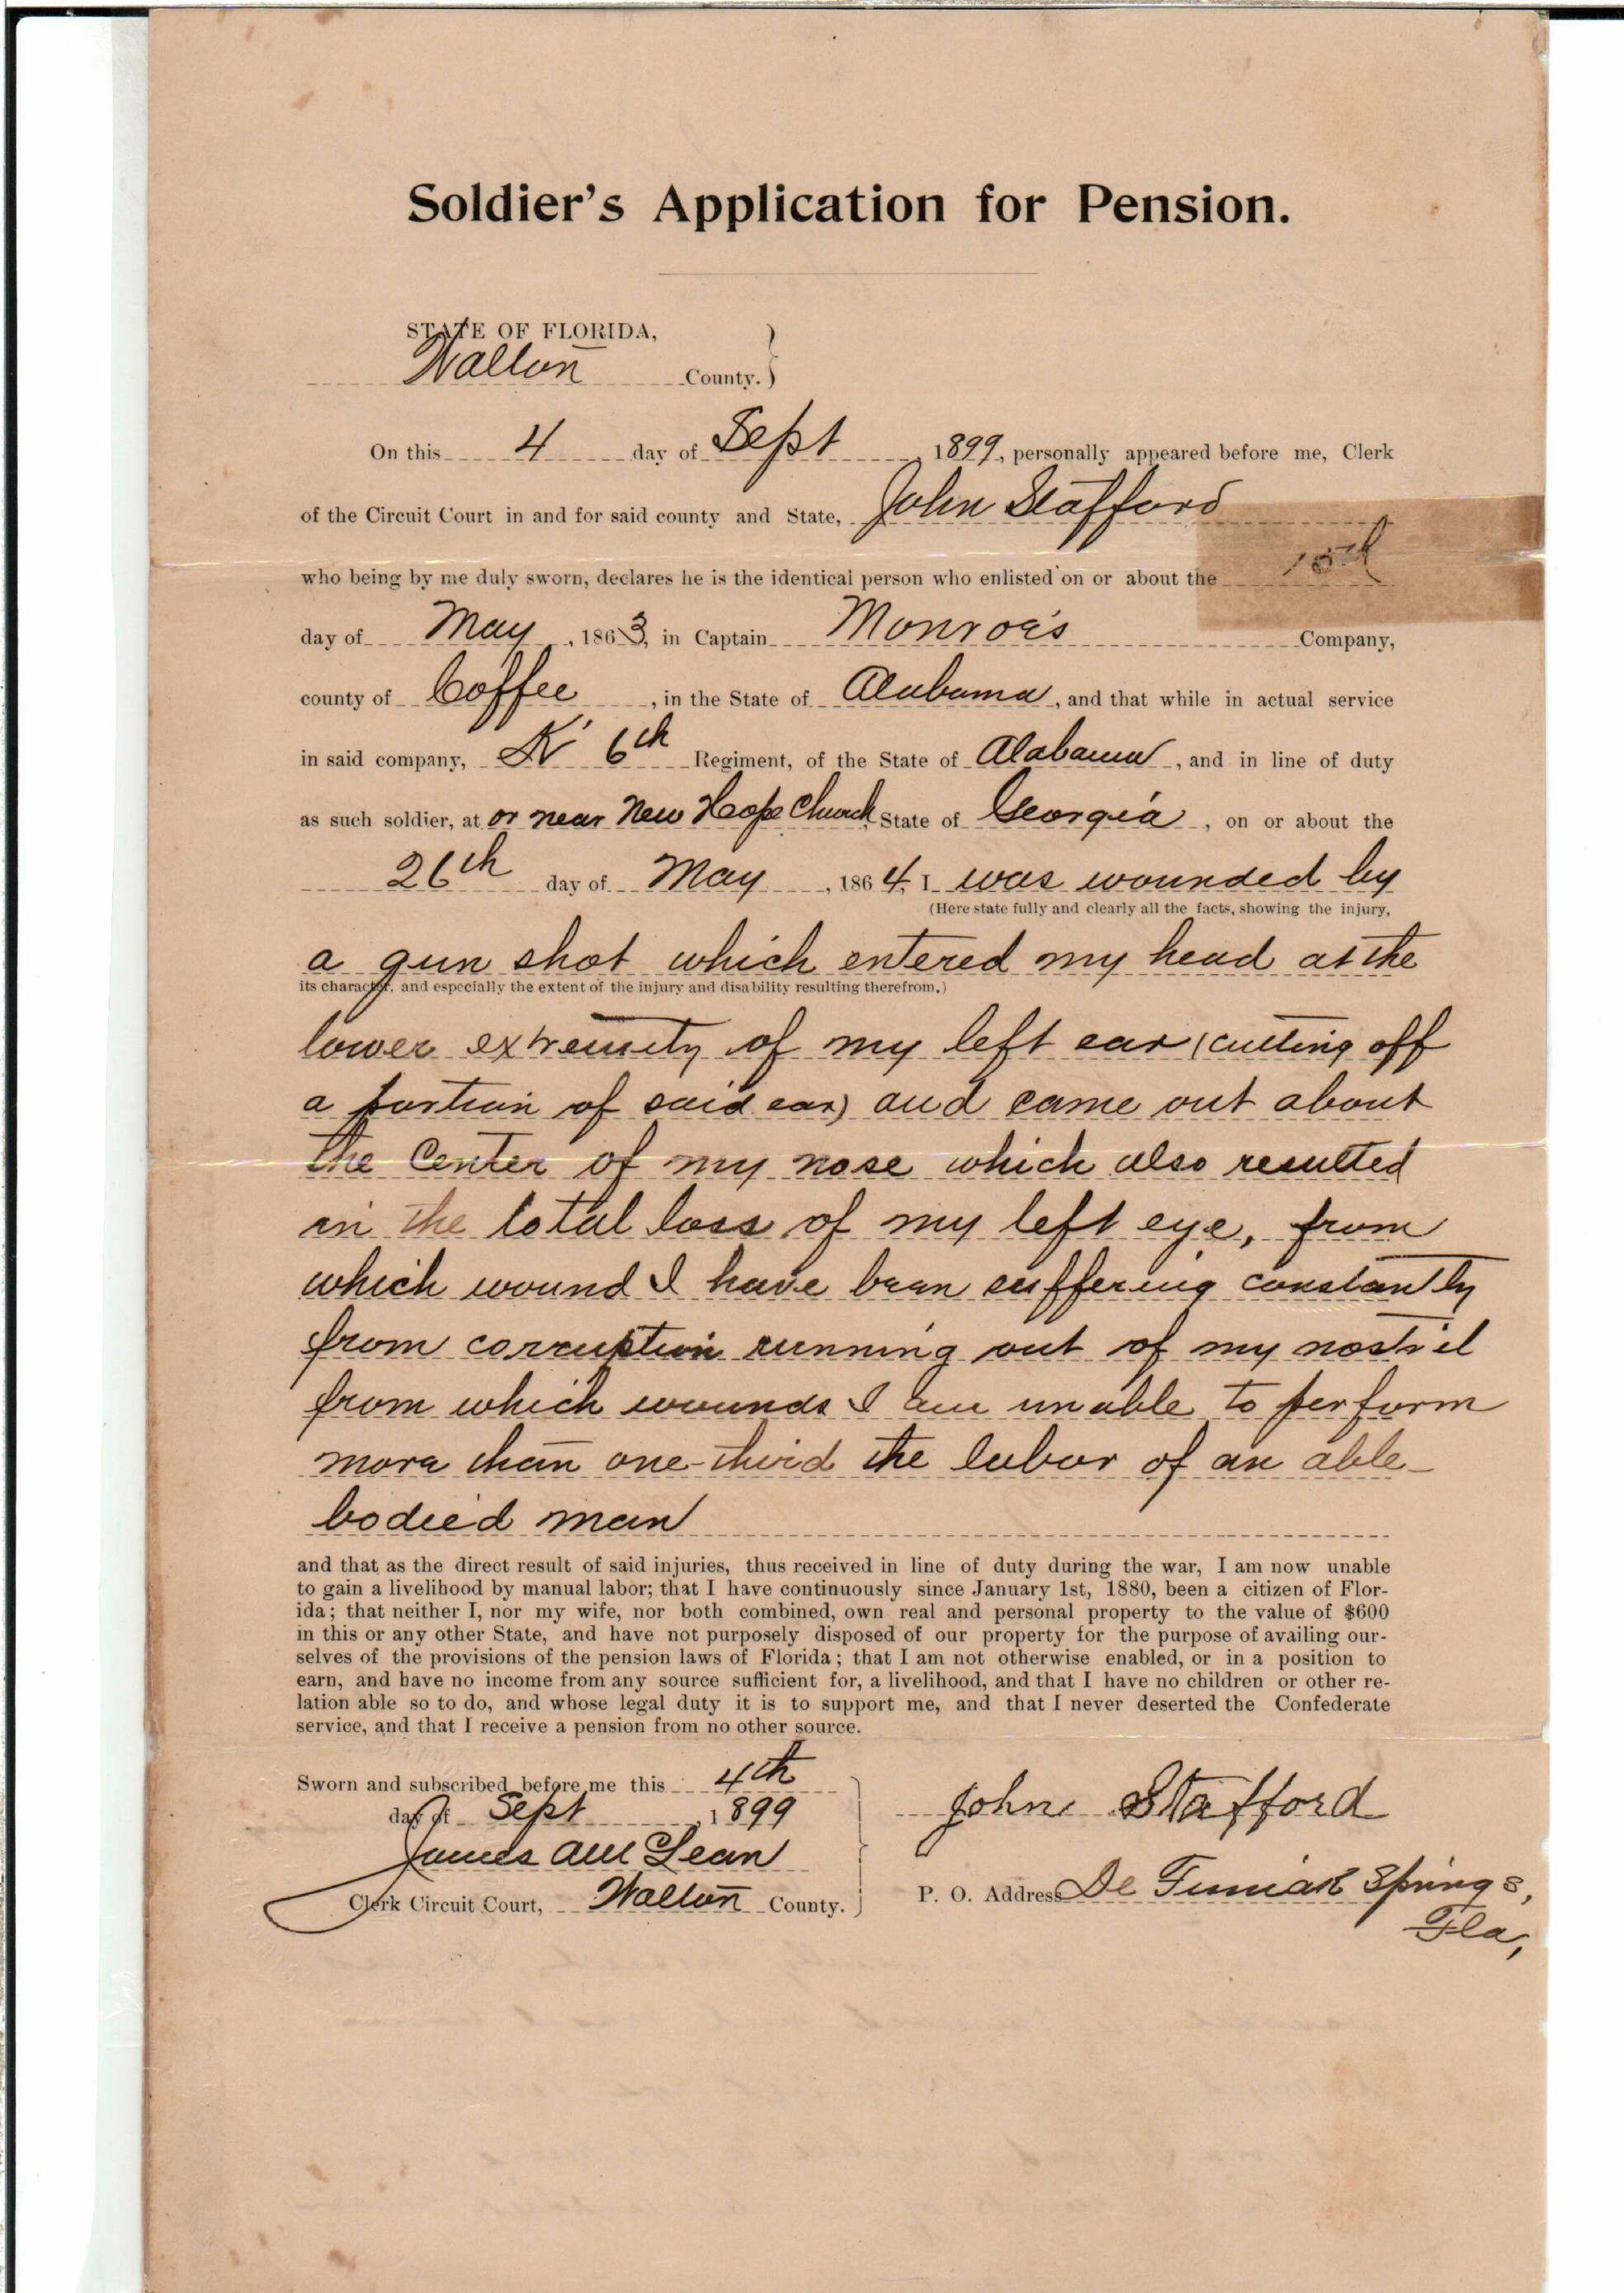 Soldier's Application for Pension.
STATE OF FLORIDA,
Walton County.
On this 4 day of Sept, 1899, personally appeared before me, Clerk
of the Circuit Court in and for said county and State, John Stafford
who being by me duly sworn, declares he is the identical person who enlisted on or about the
day of May, 1863, in Captain Monroe's Company,
county of Coffee, in the State of Alabama, and that while in actual service
in said company, K 6th Regiment, of the State of Alabama, and in line of duty
as such soldier, at or near New Hope Church State of Georgia, on or about the
26th day of May, 1864, I was wounded by
(Here state fully and clearly all the facts, showing the injury,
a gun shot which entered my head at the
its character, and especially the extent of the injury and disability resulting therefrom.)
lower extremity of my left ear (cutting off
a portion of said ear) and came out about
the Center of my nose which also resulted
in the total loss of my left eye, from
which wound I have been suffering constantly
from corruption running out of my nostril
from which wounds I am unable to perform
more than one-third the labor of an able-
bodied man
and that as the direct result of said injuries, thus received in line of duty during the war, I am now unable
to gain a livelihood by manual labor; that I have continuously since January 1st, 1880, been a citizen of Flor-
ida; that neither I, nor my wife, nor both combined, own real and personal property to the value of $600
in this or any other State, and have not purposely disposed of our property for the purpose of availing our-
selves of the provisions of the pension laws of Florida; that I am not otherwise enabled, or in a position to
earn, and have no income from any source sufficient for, a livelihood, and that I have no children or other re-
lation able so to do, and whose legal duty it is to support me, and that I never deserted the Confederate
service, and that I receive a pension from no other source.
Sworn and subscribed before me this 4th
day of Sept, 1899
James McLean
Clerk Circuit Court, Walton County.
John Stafford
P. O. Address De Funiak Springs,
Fla,